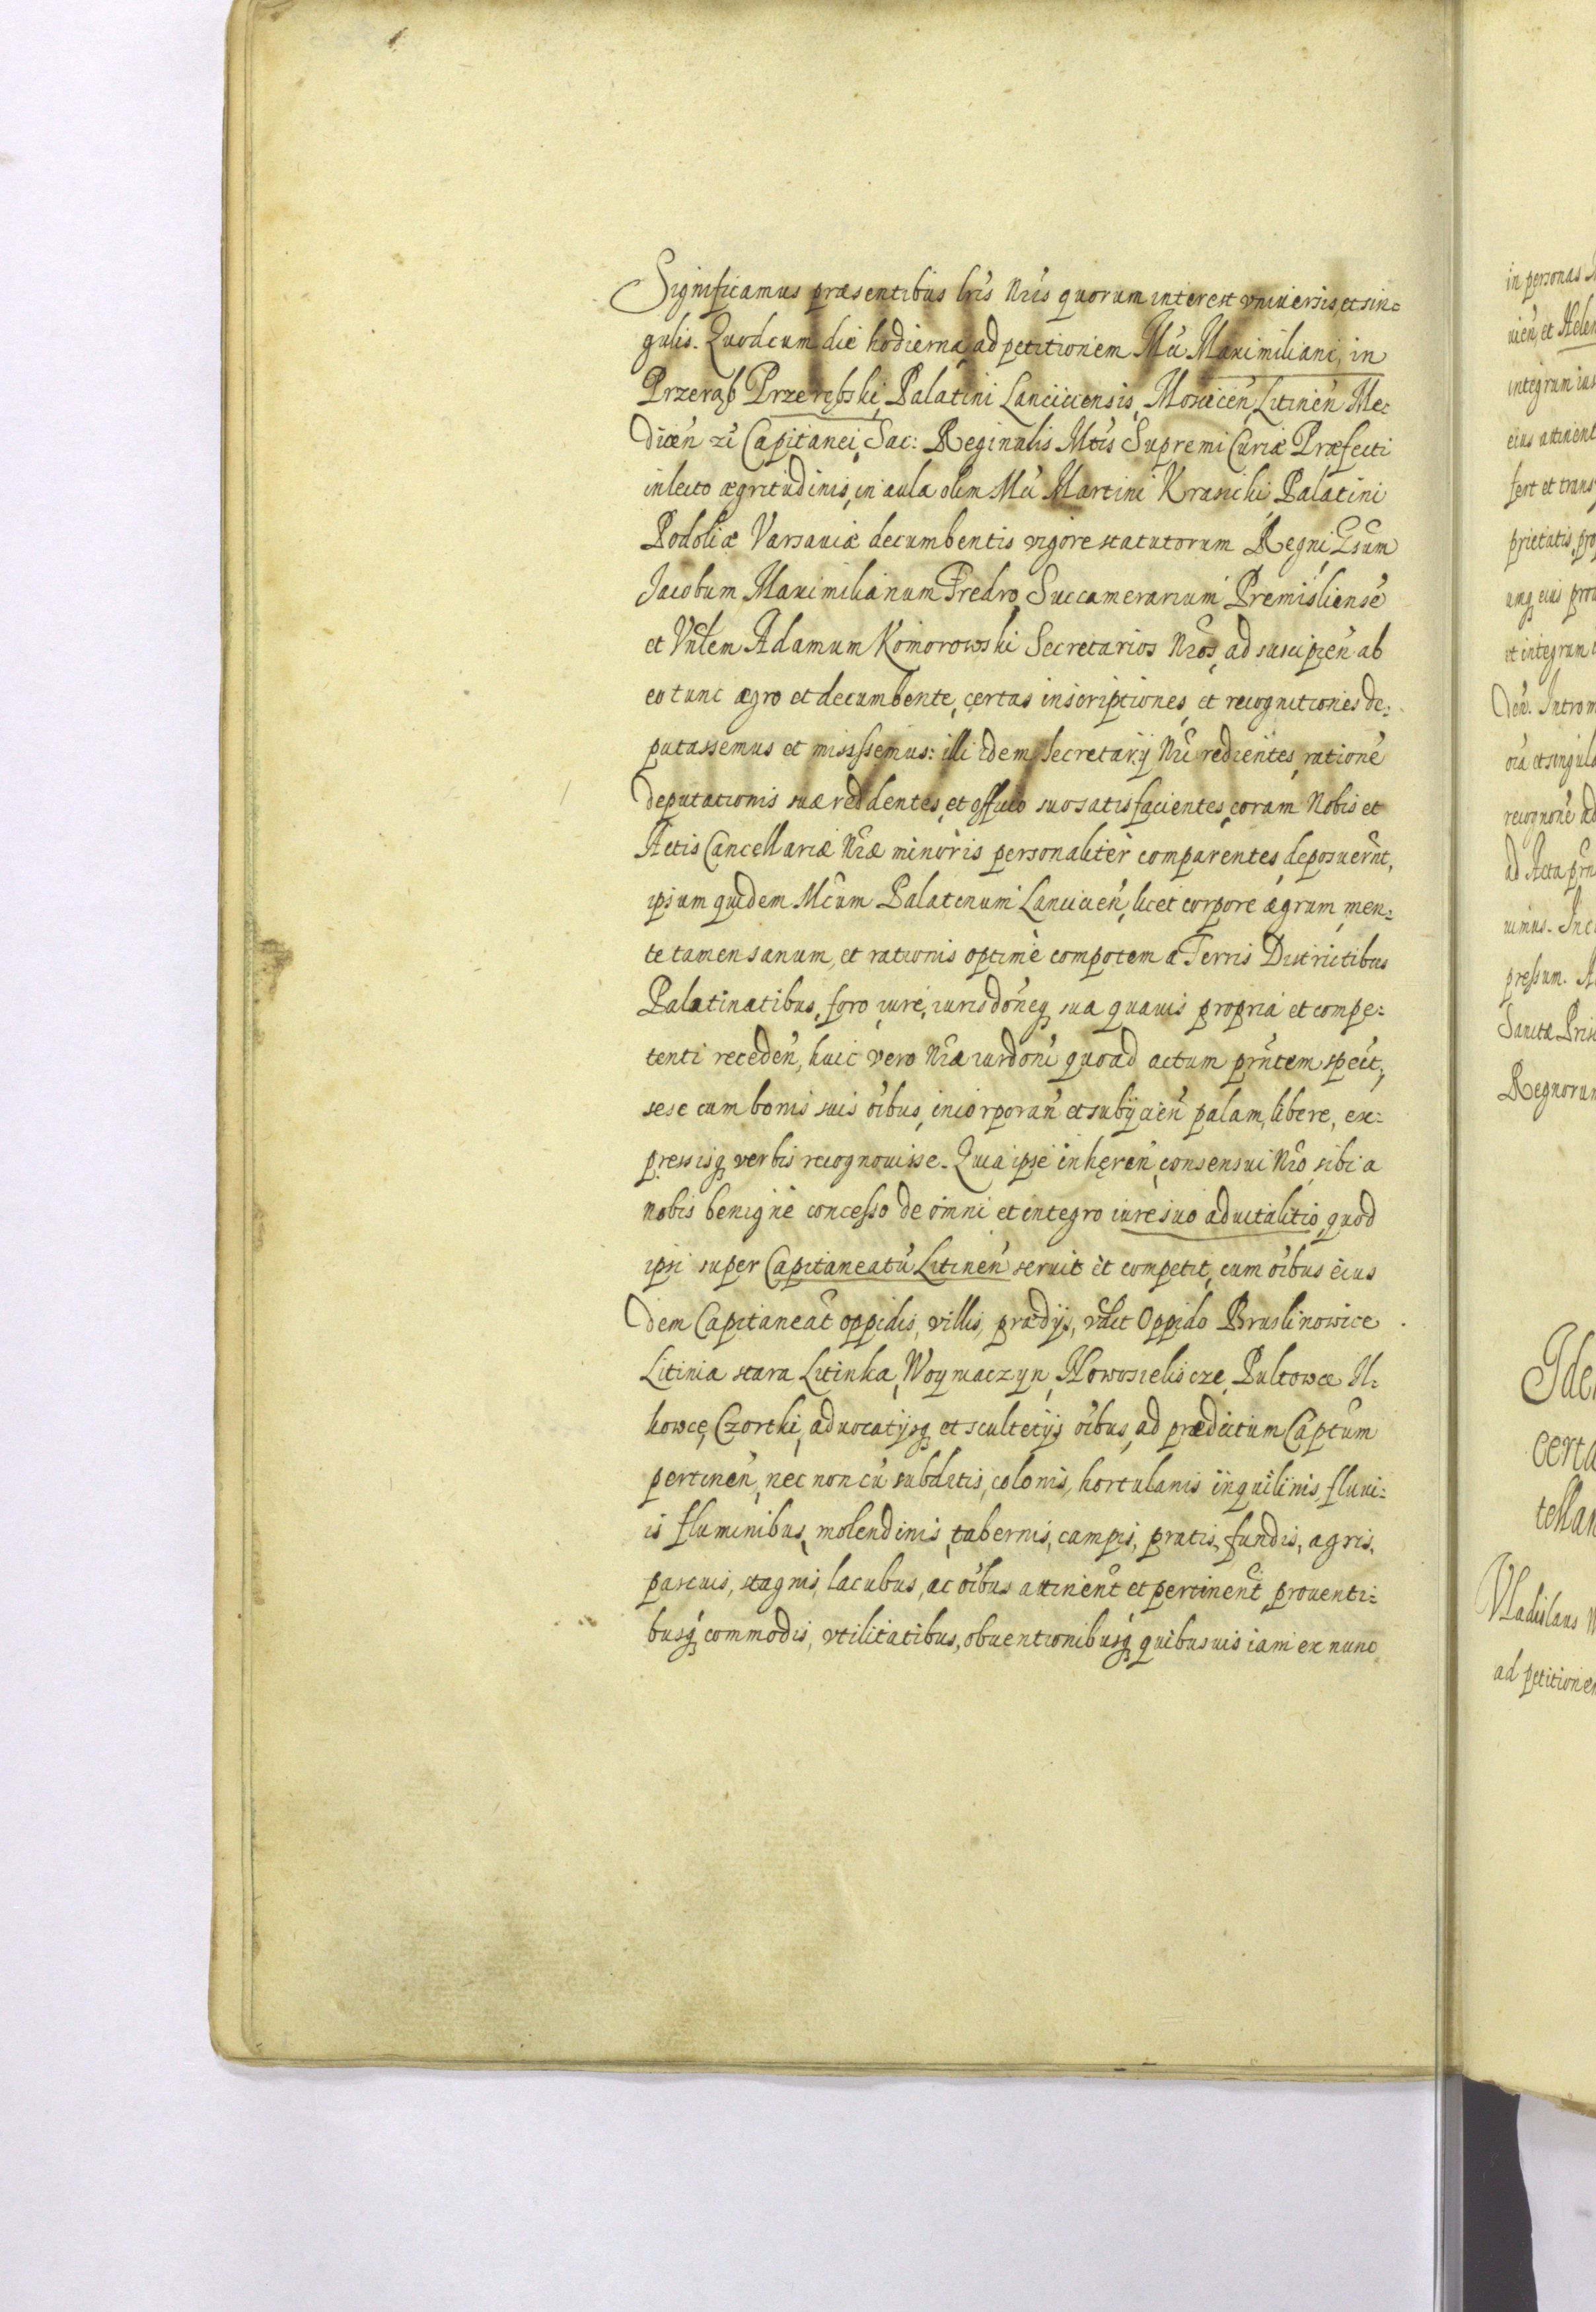 Significamus præsentibus lris nris quorum interest vniuersis, et sin=
gulis. Quod cum die hodierna, ad petitionem Mci Maximiliani, in
Przeręb Przerębski, Palatini Lanciciensis, Moscicen̄, Litinen̄ Me=
dicen̄ zc̄ Capitanei, Sac: Reginalis Mtis Supremi Curiæ Præfecti
in lecto ægritudinis, in aula olim Mci Martini Krasicki, Palatini
Podoliæ Varsauiæ decumbentis vigore statutorum Regni, Gsum
Jacobum Maximilianum Fredro, Succamerarium Premisliensē
et Vrblem Adamum Komorowski Secretarios Nros, ad suscipien̄ ab
eo tunc ægro et decumbente, certas inscriptiones, et recognitiones de=
putassemus et misissemus: illi idem Secretarij Nri redientes, rationē
deputationis suæ reddentes, et officio suo satisfacientes, coram Nobis et
Actis Cancellariæ Nræ minoris personaliter comparentes, deposuerūt,
ipsum quidem Mcum Palatinum Lancicien̄, licet corpore ægrum, men=
te tamen sanum, et rationis optimè compotem a Terris Districtibus
Palatinatibus, foro, iure, iurisdōneq; sua quauis propria et compe=
tenti receden̄, huic vero Nræ iurdōni quoad actum prn̄tem spect,
sese cum bonis suis oībus, incorporan̄ et subijcien̄ palam, libere, ex=
pressisq; verbis recognouisse. Quia ipse inhęren̄, consensui Nro, sibi a
nobis benignè concesso de omni et integro iure suo aduitalitio, quod
ipsi super Capitaneatū Litinen̄ seruit et competit, cum oībus eius
dem Capitaneat̄ oppidis, villis, prædijs, vdlt Oppido Bruslinowice
Litinia stara Litinka, Woynaczyn, Nowosieliscze, Pultowce Il=
kowcę, Czortki, aduocatijsq; et scultetijs oībus, ad prædictum Captum
pertinen̄, nec non cū subditis, colonis, hortulanis inquilinis, fluui=
is fluminibus, molendinis, tabernis, campis, pratis, fundis, agris,
pascuis, stagnis, lacubus, ac oībus attinent̄ et pertinent̄, prouenti=
busq; commodis, vtilitatibus, obuentionibusq; quibusuis iam ex nunc